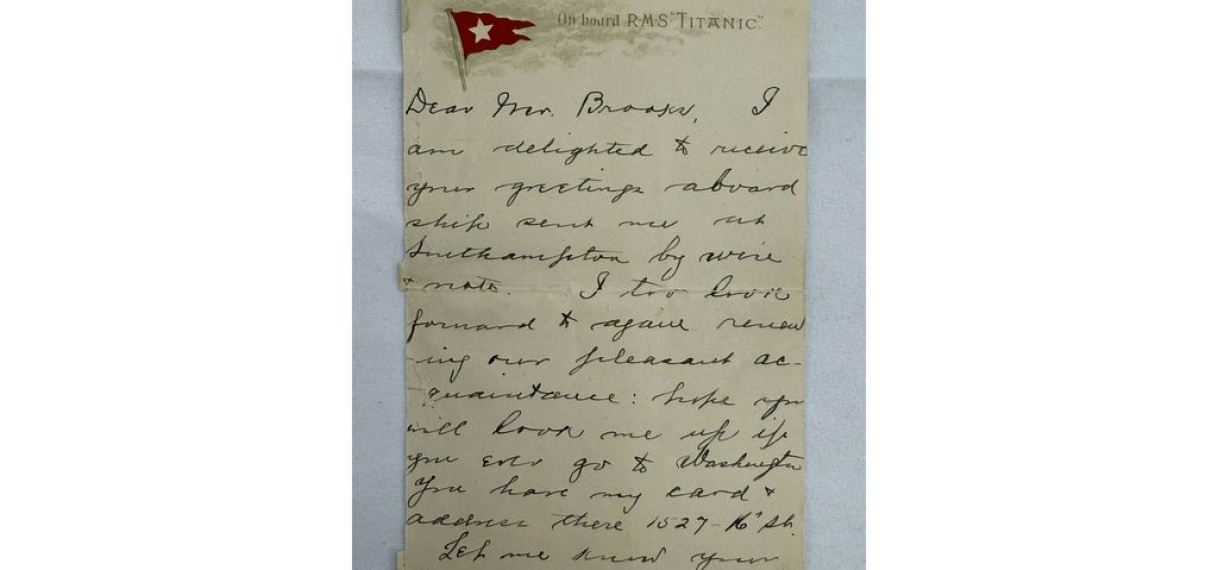 On board R·M·S "TITANIC".
Dear Mr. Brooks, I
am delighted to receive
your greetings aboard
ship sent me at
Southampton by wire
& note. I too look
forward to again renew
-ing our pleasant ac-
-quaintance: hope you
will look me up if
you ever go to Washington
You have my card &
address there 1527-16" St.
Let me know your